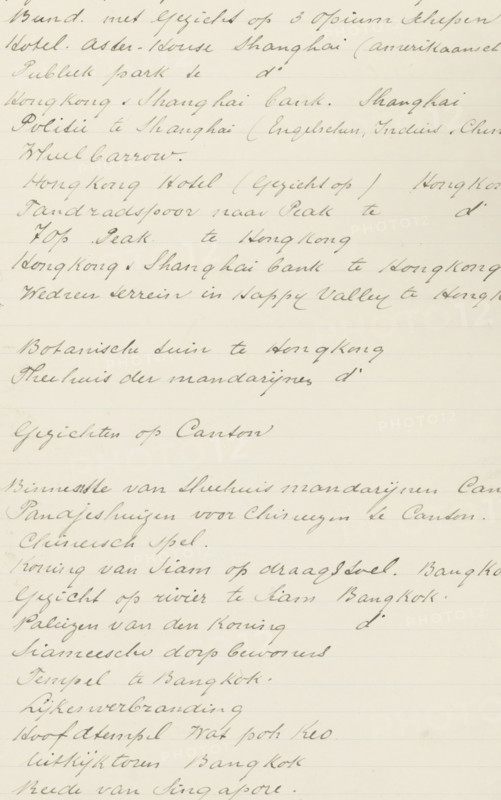 Bund. met Gezicht op 3 Opium schepen
Hotel. Aster-House Shanghai (amerikaansch
Publiek park te d°
Hongkong & Shanghai bank. Shanghai
Politie te Shanghai (Engelschen, Indiërs, Chin
Wheel barrow.
Hongkong Hotel (Gezicht op) Hongkon
Tandradspoor naar Peak te d°
Top Peak te Hongkong
Hongkong & Shanghai bank te Hongkong
Wedren terrein in Happy Valley te Hongk
Botanische tuin te Hongkong
Theehuis der mandarijnen d°
Gezichten op Canton
Binnenste van theehuis mandarijnen Can
Pandjeshuizen voor Chineezen te Canton.
Chineesch spel.
Koning van Siam op draagstoel. Bangko
Gezicht op rivier te Siam Bangkok.
Paleizen van den Koning d°
Siameesche dorp bewoners
Tempel te Bangkok.
Lijkenverbranding
Hoofdtempel Wat poh Keo
Uitkijktoren Bangkok
Reede van Singapore.